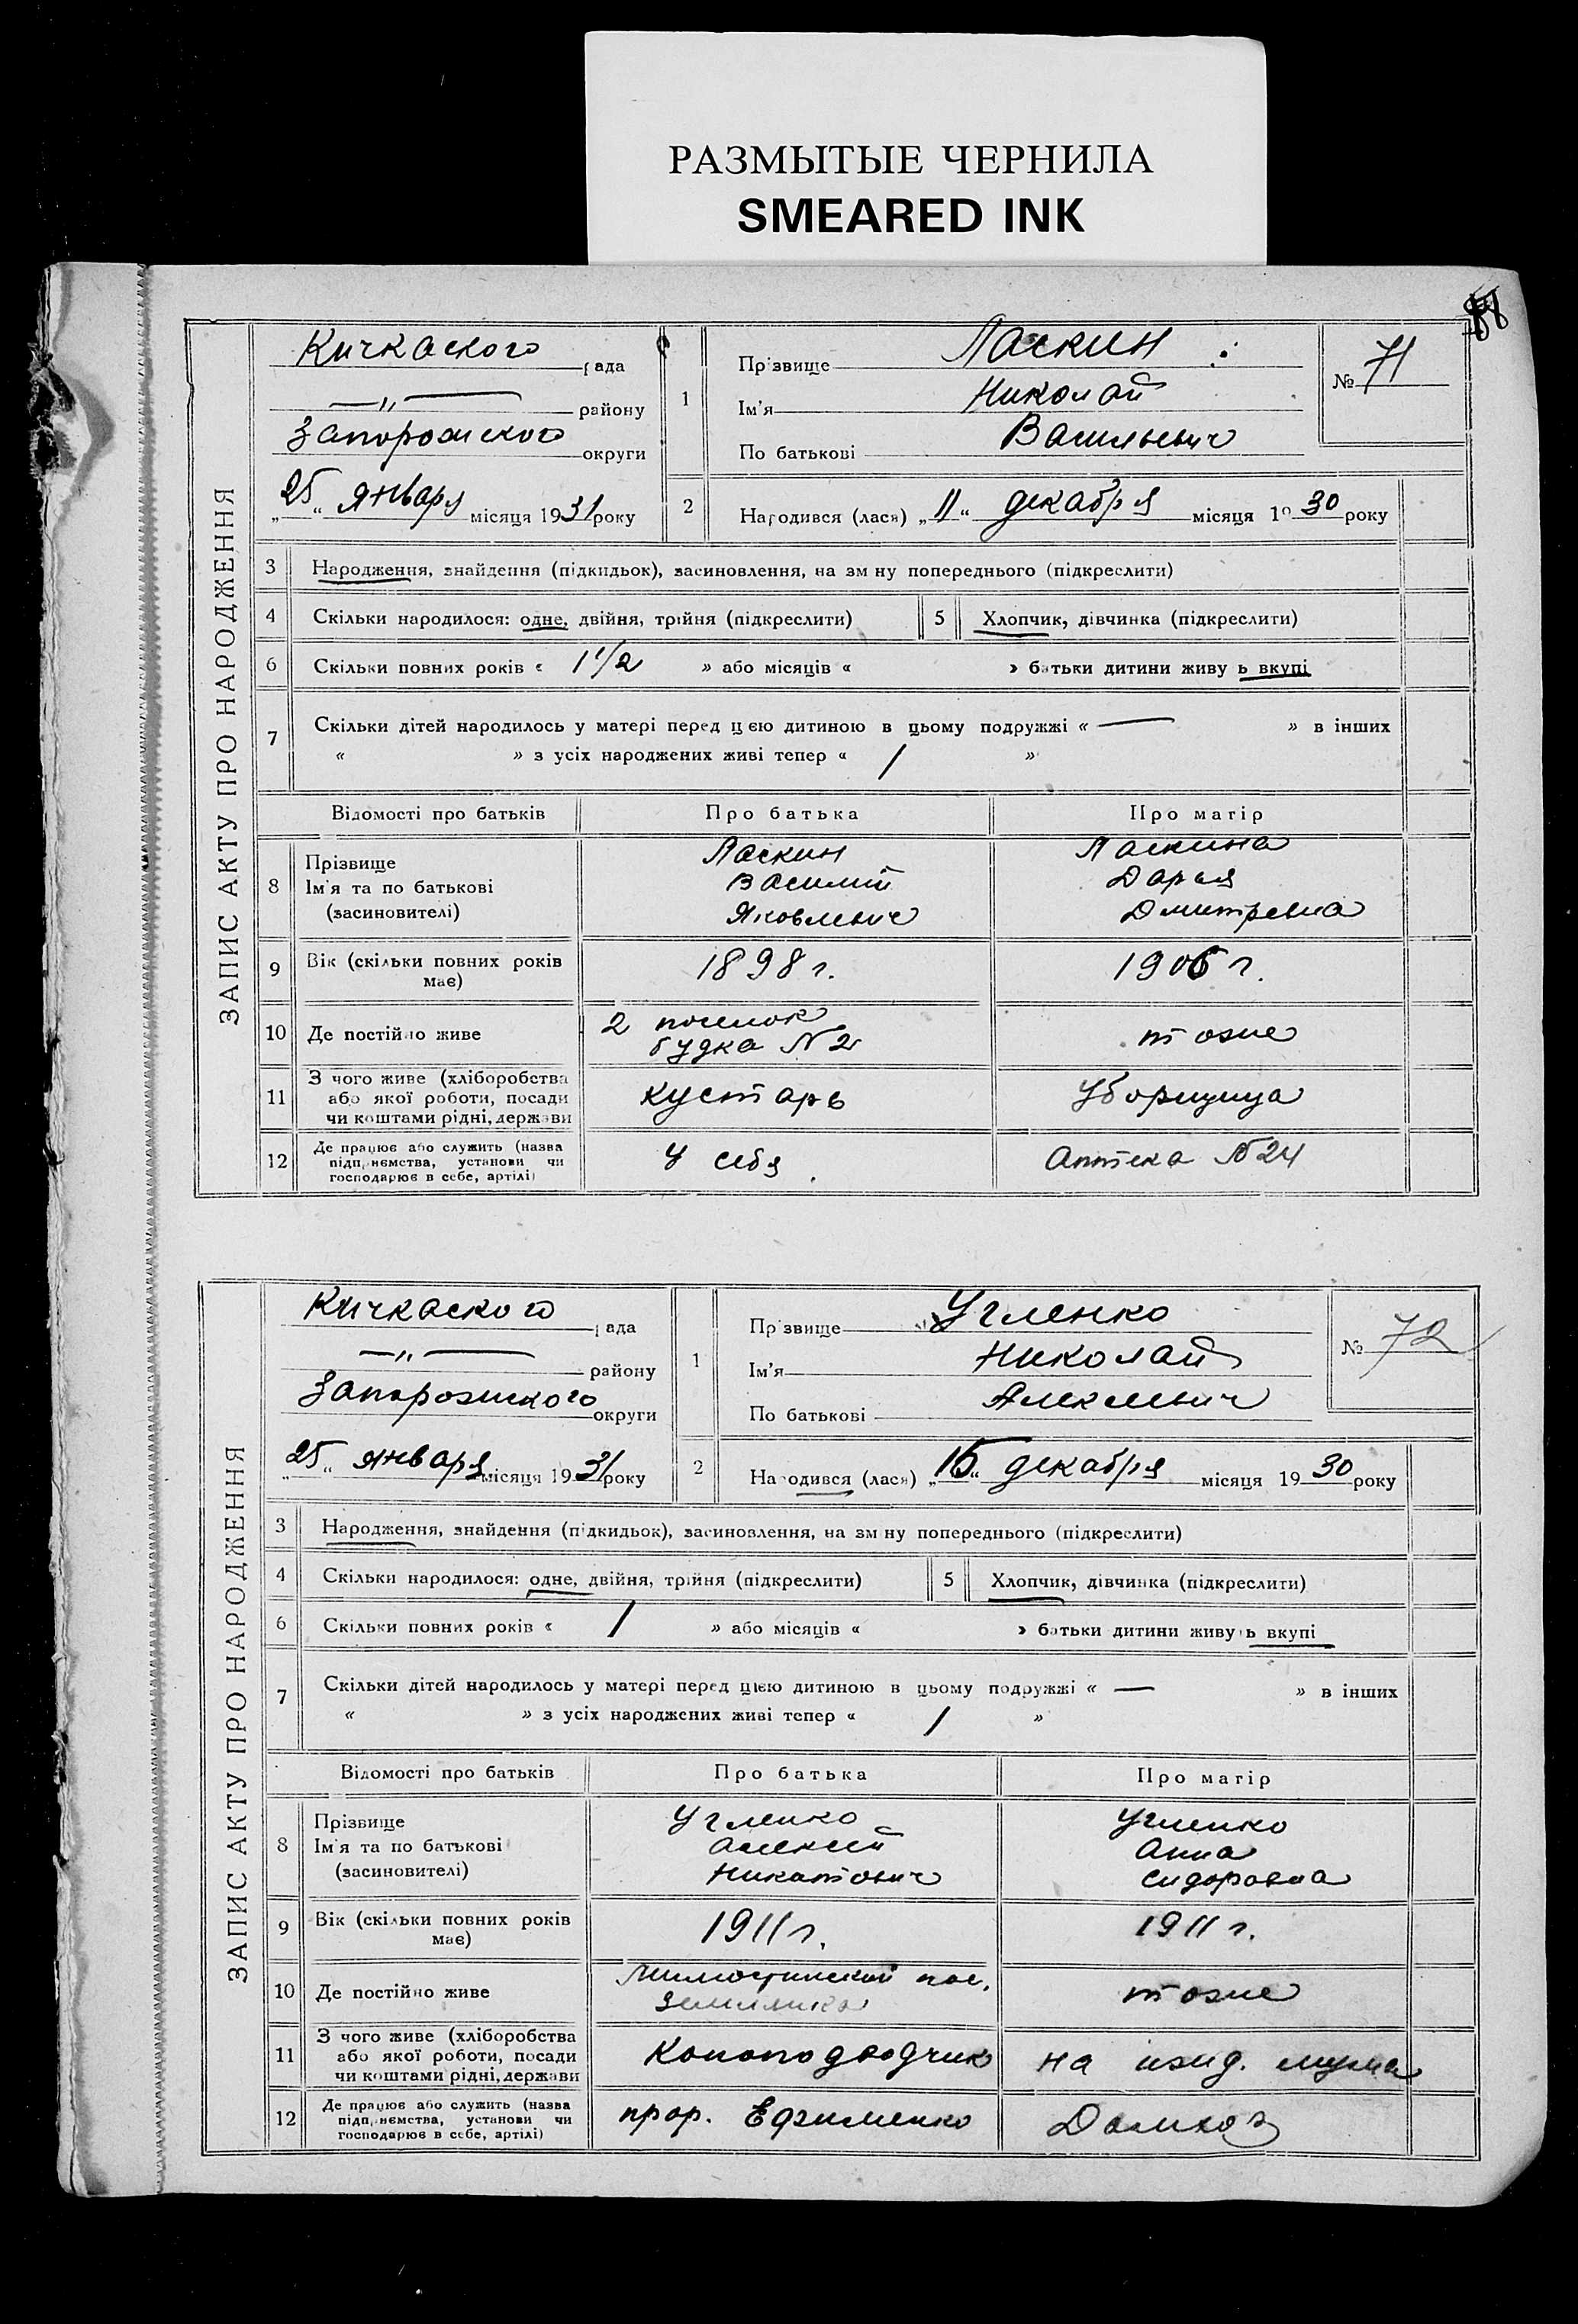 РАЗМЫТЫЕ ЧЕРНИЛА
SMEARED INK
ЗАПИС АКТУ ПРО НАРОДЖЕННЯ
Кичкаского рада
—„— району
Запорожского округи
„25“ января місяця 1931 року
1
Прізвище Ласкин
Ім'я Николай
По батькові Васильевич
№ 71
2
Народився (лася) „11“ декабря місяця 1930 року
3 Народження, знайдення (підкидьок), засиновлення, на зміну попереднього (підкреслити)
4 Скільки народилося: одне, двійня, трійня (підкреслити) 5 Хлопчик, дівчинка (підкреслити)
6 Скільки повних років « 1 1/2 » або місяців « » батьки дитини живуть вкупі
7 Скільки дітей народилось у матері перед цією дитиною в цьому подружжі « — » в інших
« » з усіх народжених живі тепер « 1 »
Відомості про батьків Про батька Про матір
8 Прізвище Ласкин Ласкина
Ім'я та по батькові Василий Дарья
(засиновителі) Яковлевич Дмитревна
9 Вік (скільки повних років має) 1898 г. 1906 г.
10 Де постійно живе 2 поселок тоже
будка №2
11 З чого живе (хліборобства
або якої роботи, посади кустарь Уборщица
чи коштами рідні, держави
12 Де працює або служить (назва
підприємства, установи чи У себя Аптека №24
господарює в себе, артілі)
ЗАПИС АКТУ ПРО НАРОДЖЕННЯ
Кичкаского рада
—„— району
Запорожского округи
„25“ января місяця 1931 року
1
Прізвище Угленко
Ім'я Николай
По батькові Алексеевич
№ 72
2
Народився (лася) „15“ декабря місяця 1930 року
3 Народження, знайдення (підкидьок), засиновлення, на зміну попереднього (підкреслити)
4 Скільки народилося: одне, двійня, трійня (підкреслити) 5 Хлопчик, дівчинка (підкреслити)
6 Скільки повних років « 1 » або місяців « » батьки дитини живуть вкупі
7 Скільки дітей народилось у матері перед цією дитиною в цьому подружжі « — » в інших
« » з усіх народжених живі тепер « 1 »
Відомості про батьків Про батька Про матір
8 Прізвище Угленко Угленко
Ім'я та по батькові Алексей Анна
(засиновителі) Сидоровна
9 Вік (скільки повних років має) 1911 г. 1911 г.
10 Де постійно живе пос. тоже
землянка
11 З чого живе (хліборобства
або якої роботи, посади Коноподводчик на ижд. мужа
чи коштами рідні, держави
12 Де працює або служить (назва
підприємства, установи чи прор. Ефименко Домхоз
господарює в себе, артілі)